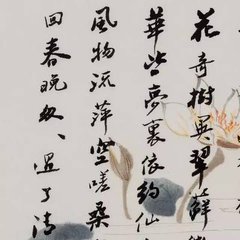 花奇樹異翠蘚
華胥夢裏依約仙
風物流萍空嗟桑
回春晚、過了清